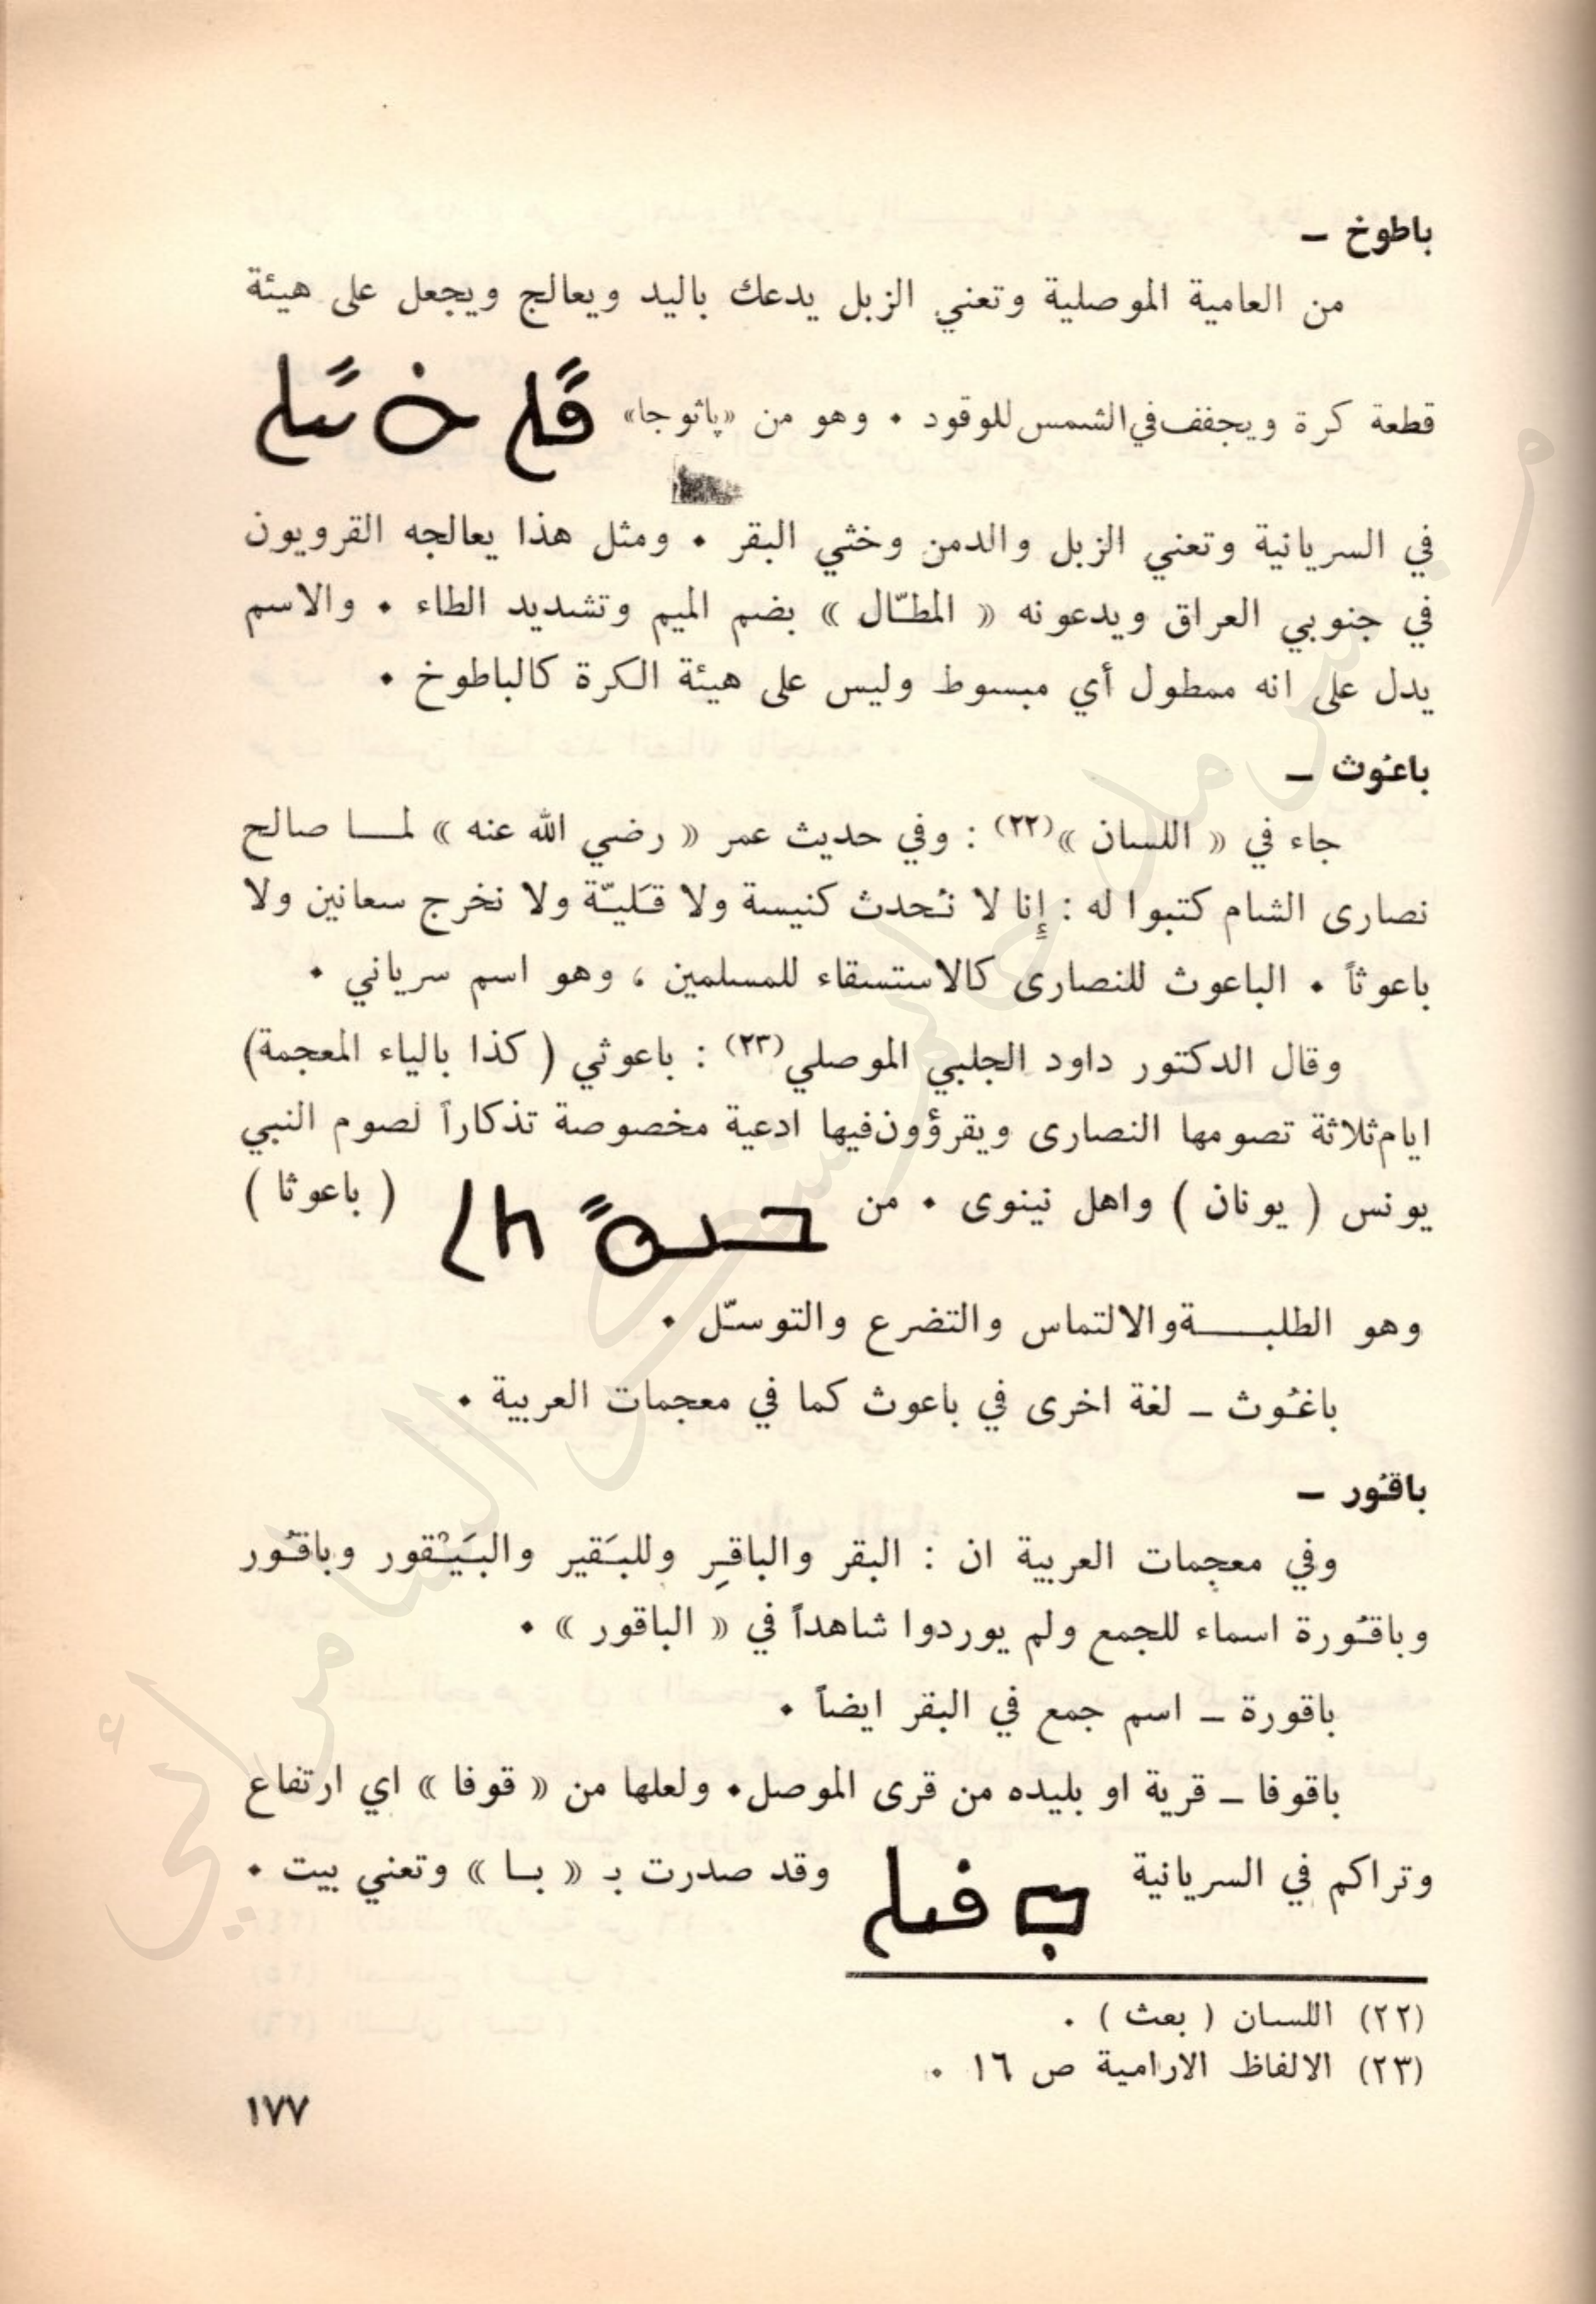 باطوخ –
من العامية الموصلية وتعني الزبل يدعك باليد ويعالج ويجعل على هيئة
قطعة كرة ويجفف في الشمس للوقود . وهو من «پاثوجا»
في السريانية وتعني الزبل والدمن وخثي البقر . ومثل هذا يعالجه القرويون
في جنوبي العراق ويدعونه « المطّال » بضم الميم وتشديد الطاء . والاسم
يدل على انه ممطول أي مبسوط وليس على هيئة الكرة كالباطوخ .
باعُوث –
جاء في « اللسان »(٢٢) : وفي حديث عمر « رضي الله عنه » لمـا صالح
نصارى الشام كتبوا له : إِنا لا نُحدث كنيسة ولا قَليّة ولا نخرج سعانين ولا
باعوثاً . الباعوث للنصارى كالاستسقاء للمسلمين ، وهو اسم سرياني .
وقال الدكتور داود الجلبي الموصلي(٢٣) : باعوثي ( كذا بالياء المعجمة)
ايام ثلاثة تصومها النصارى ويقرؤون فيها ادعية مخصوصة تذكاراً لصوم النبي
يونس ( يونان ) واهل نينوى . من ( باعوثا )
وهو الطلبـــة والالتماس والتضرع والتوسّل .
باغُوث – لغة اخرى في باعوث كما في معجمات العربية .
باقُور –
وفي معجمات العربية ان : البقر والباقِر وللبَقير والبَيْقور وباقُور
وباقُورة اسماء للجمع ولم يوردوا شاهداً في « الباقور » .
باقورة – اسم جمع في البقر ايضاً .
باقوفا – قرية او بليده من قرى الموصل . ولعلها من « قوفا » اي ارتفاع
وتراكم في السريانية وقد صدرت بـ « بـا » وتعني بيت .
(٢٢) اللسان ( بعث ) .
(٢٣) الالفاظ الارامية ص ١٦ .
١٧٧